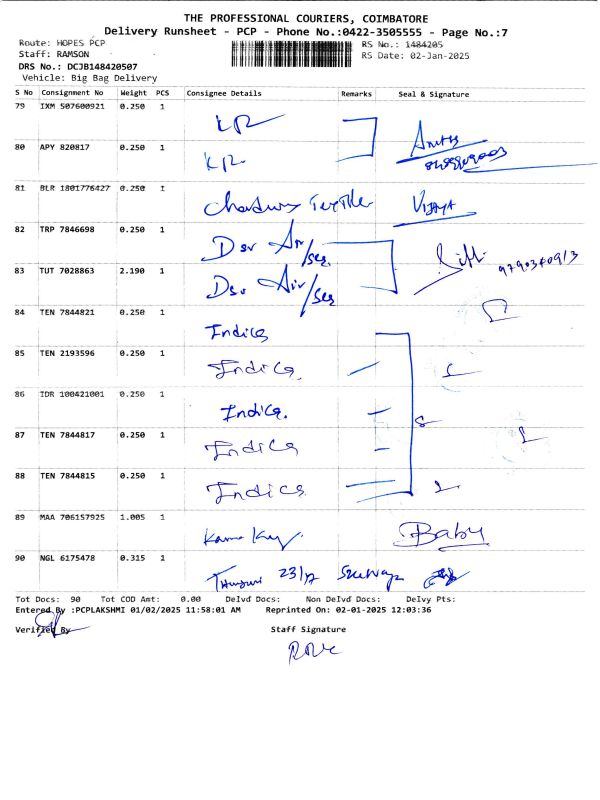 THE PROFESSIONAL COURIERS, COIMBATORE
Delivery Runsheet - PCP - Phone No.:0422-3505555 - Page No.:7
Route: HOPES PCP
RS No.: 1484205
Staff: RAMSON
RS Date: 02-Jan-2025
DRS No.: DCJB148420507
Vehicle: Big Bag Delivery
S No Consignment No Weight PCS Consignee Details Remarks Seal & Signature
79 IXM 507600921 0.250 1
80 APY 820817 0.250 1
81 BLR 1801776427 0.250 1 VIJAYA
82 TRP 7846698 0.250 1
83 TUT 7028863 2.190 1
84 TEN 7844821 0.250 1 Indica
85 TEN 2193596 0.250 1 Indica
86 IDR 100421001 0.250 1 Indica.
87 TEN 7844817 0.250 1 Indica
88 TEN 7844815 0.250 1 Indica
89 MAA 706157925 1.005 1 Baby
90 NGL 6175478 0.315 1
Tot Docs: 90 Tot COD Amt: 0.00 Delvd Docs: Non Delvd Docs: Delvy Pts:
Entered By :PCPLAKSHMI 01/02/2025 11:58:01 AM Reprinted On: 02-01-2025 12:03:36
Verified By Staff Signature